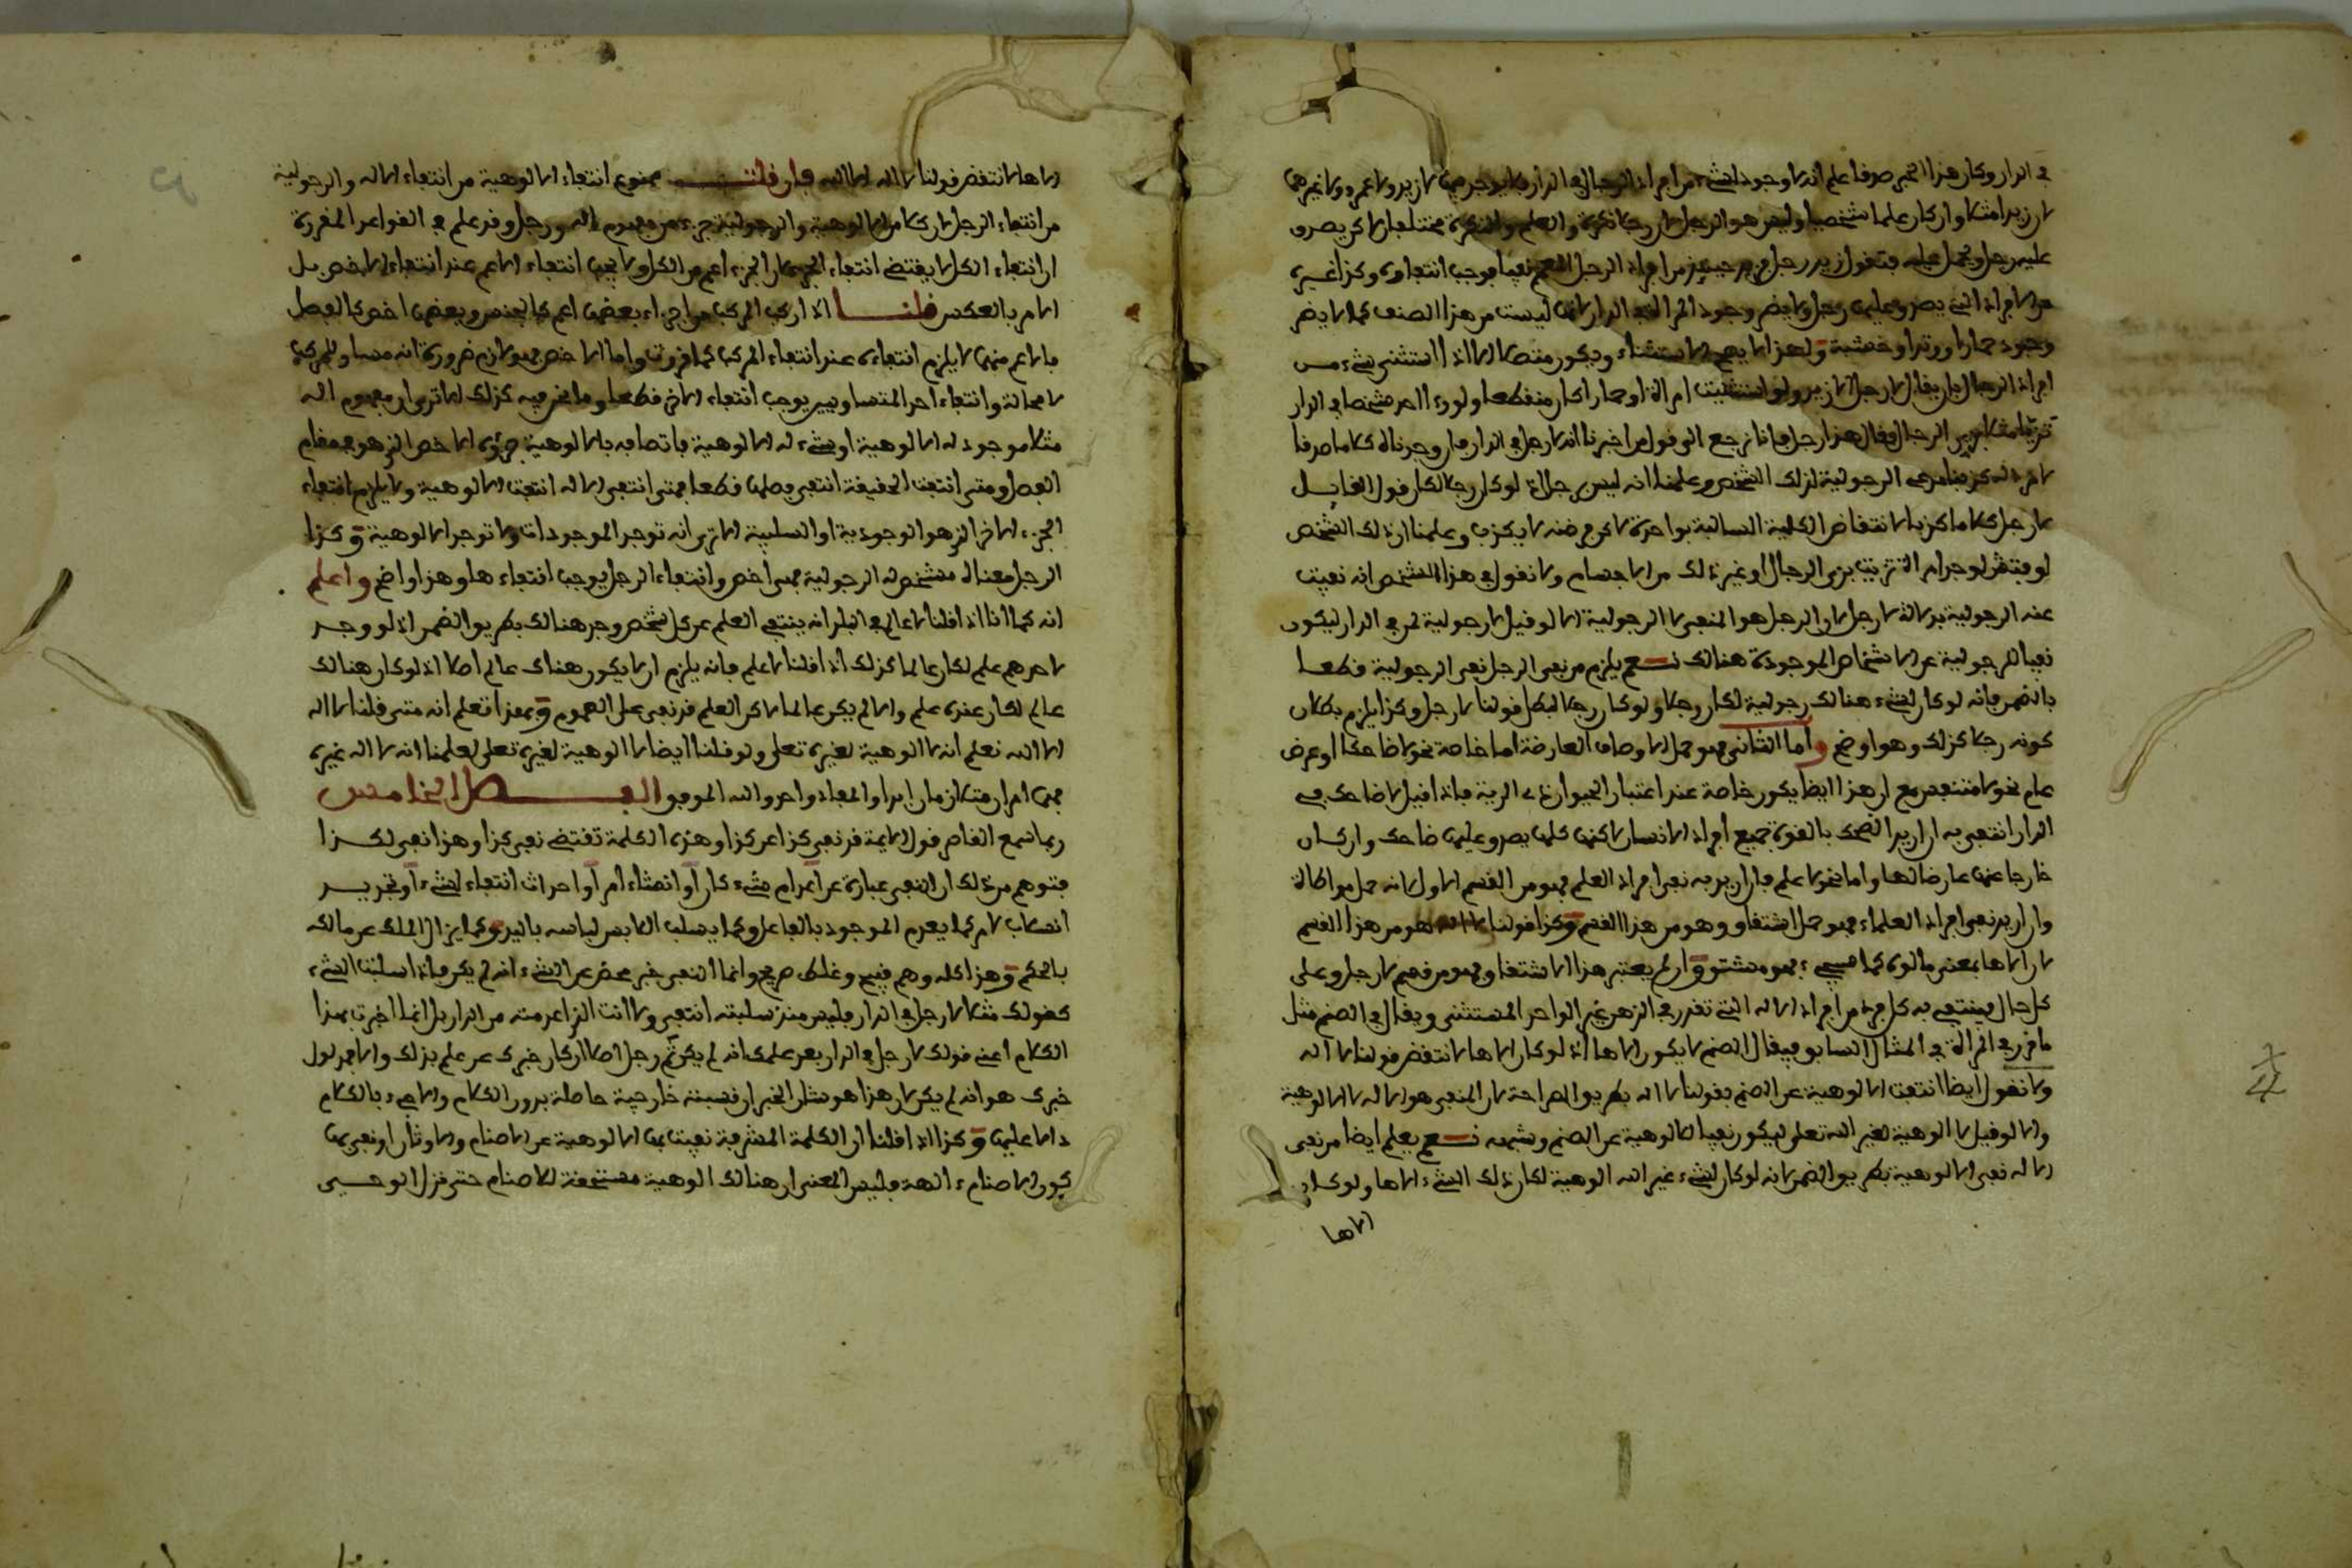 في الدار وكان هذا الخبر صدقا علم انه لا وجود لشيء من افراد الرجال في الدار فلا يوجد فيها لا زيد ولا عمرو ولا غيرهما
لان زيدا مثلا وان كان علما شخصيا وليس هو الرجل لان رجلا نكرة والعلم والنكرة مختلفان لاكن يصدق
عليه رجل ويحمل عليه فتقول زيد رجل فهو حينئذ من افراد الرجل المعم نفيا فوجب انتفاؤه وكذا غيره
من الافراد التي يصدق عليها رجل ولا يضر وجود المراة في الدار لانها ليست من هذا الصنف كما لا يضر
وجود حمار او وتد او خشبة ولهذا لا يصح الاستثناء ويكون متصلا الا اذا استثني شيء من
افراد الرجال بل يقال لا رجل الا زيد ولو استثنيت امراة او حمارا كان منقطعا ولو رءا احد شخصا في الدار
تزيا مثلا بزي الرجال فقال هذا رجل فانا نرجع الى قول من اخبرنا انه لا رجل في الدار فان وجدناه كلاما صدقا
لا مرد له كذبنا مدعي الرجولية لذلك الشخص وعلمنا انه ليس برجل اذ لو كان رجلا لكان قول القايل
لا رجل كلاما كذبا لانتقاض الكلية السالبة بواحدة لاكن فرضنه لا يكذب وعلمنا ان ذلك الشخص
لو فتش لوجد امراة تزيت بزي الرجال او غير ذلك من الاجسام ولا نقول في هذا الشخص انه نفيت
عنه الرجولية بدلالة لا رجل لان الرجل هو المنفي لا الرجولية الا لو قيل لا رجولية لمن في الدار ليكون
نفيا للرجولية عن الاشخاص الموجودة هنالك نعم يلزم من نفي الرجل نفي الرجولية قطعا
بالضمن فانه لو كان لشيء هنالك رجولية لكان رجلا ولو كان رجلا لبطل قولنا لا رجل وكذا يلزم بطلان
كونه رجلا كذلك وهو اوضح واما الثاني فهو حمل الاوصاف العارضة اما خاصة نحو لا ضاحكا او عرض
عام نحو لا متنفس مع ان هذا ايضا يكون خاصة عند اعتبار الحيوان ذي الرية فاذا قيل لا ضاحك في
الدار انتفى به ان اريد الضحك بالقوة جميع افراد الانسان لاكنها كلها يصدق عليها ضاحك وان كان
خارجا عنها عارضا لها واما نحو لا علم فان اريد به نفي افراد العلم فهو من القسم الاول لانه حمل مواطاة
وان اريد نفي افراد العلماء فهو حمل اشتقاق وهو من هذا القسم وكذا قولنا لا اله هو من هذا القسم
لان الاها بمعنى مالوه كما سيجيء فهو مشتق وان لم يعتبر هذا الاشتقاق فهو من قسم لا رجل وعلى
كل حال فينتفي به كل فرد من افراد الاله التي تقدر في الذهن غير الواحد المستثنى ويقال في الصنم مثل
ما قرر في المراة في المثال السابق فيقال الصنم لا يكون الاها اذ لو كان الاها لانتقض قولنا لا اله
ولا نقول ايضا انتفت الالوهية عن الصنم بقولنا لا اله بطريق الصراحة لان المنفي هو الاله لا الالوهية
والا لو قيل لا الوهية لغير الله تعلى ليكون نفيا للالوهية عن الصنم وشبهه نعم يعلم ايضا من نفي
الاله نفي الالوهية بطريق الضمن لانه لو كان لشيء غير الله الوهية لكان ذلك الشيء الاها ولو كان
الاها
الاها لانتقض قولنا لا اله الا الله فان قلت ممنوع انتفاء الالوهية من انتفاء الاله والرجولية
من انتفاء الرجل لان كلا من الالوهية والرجولية جزء من مفهوم اله ورجل وقد علم في القواعد المقررة
ان انتفاء الكل لا يقتضي انتفاء الجزء لان الجزء اعم من الكل ولا يجب انتفاء الاعم عند انتفاء الاخص بل
الامر بالعكس قلنا اذا ركب المركب من اجزاء بعضها اعم كالجنس وبعضها اخص كالفصل
فالاعم منها لا يلزم انتفاؤه عند انتفاء المركب كما قررت واما الاخص فهو لازم ضرورة انه مساو للمركب
لا محالة وانتفاء احد المتساويين يوجب انتفاء الاخر قطعا وما نحن فيه كذلك الا ترى ان مفهوم اله
مثلا موجود له الالوهية او شيء له الالوهية فاتصافه بالالوهية جزؤه الاخص الذي هو في مقام
الفصل ومتى انتفت الحقيقة انتفى فصلها قطعا فمتى انتفى الاله انتفت الالوهية ولا يلزم انتفاء
الجزء الاخر الذي هو الوجودية او السلبية الا ترى انه توجد الموجودات ولا توجد الالوهية وكذا
الرجل معناه شخص له الرجولية فهي اخص وانتفاء الرجل يوجب انتفاءها وهذا واضح واعلم
انه كما انا اذا قلنا لا عالم في البلد انه ينتفي العلم عن كل شخص وجد هنالك بطريق الضمن اذ لو وجد
لاحدهم علم لكان عالما كذلك اذا قلنا لا علم فانه يلزم ان لا يكون هناك عالم اصلا اذ لو كان هنالك
عالم لكان عنده علم والا لم يكن عالما لاكن العلم قد نفي على العموم وبهذا تعلم انه متى قلنا لا اله
الا الله نعلم انه لا الوهية لغيره تعلى ولو قلنا ايضا لا الوهية لغيره تعلى لعلمنا انه لا اله غيره
فهما امران متلازمان ابدا والمفاد واحد والله الموفق الفصل الخامس
ربما سمع القاصر قول الايمة قد نفى كذا عن كذا وهذه الكلمة تقتضي نفي كذا وهذا نفي لكذا
فتوهم من ذلك ان النفي عبارة عن اعدام شيء كان او انشاء امر او احداث انتفاء لشيء او تجريد
انسلاب لامر كما يعدم الموجود بالفاعل وكما يسلب اللابس لباسه باليد وكما يزال الملك عن مالك
بالحكم وهذا كله وهم قبيح وغلط صريح وانما النفي خبر محض عن الشيء انه لم يكن فاذا سلبت الشيء
كقولك مثلا لا رجل في الدار فليس منذ سلبته انتفى ولا انت الذاعر منه من الدار بل انما اخبرت بهذا
الكلام اعني قولك لا رجل في الدار بعد علمك انه لم يكن ثم رجل اصلا ان كان خبرك عن علم بذلك والا فمدلول
خبرك هو انه لم يكن لان هذا هو شان الخبر ان نسبته خارجية حاصلة بدون الكلام والا فهي بالكلام
دالا عليها وكذا اذا قلنا ان الكلمة المشرفة نفيت بها الالوهية عن الاصنام والاوثان او نفي بها
كون الاصنام ءالهة فليس المعنى ان هنالك الوهية مستحقة للاصنام حتى نزل الوحي